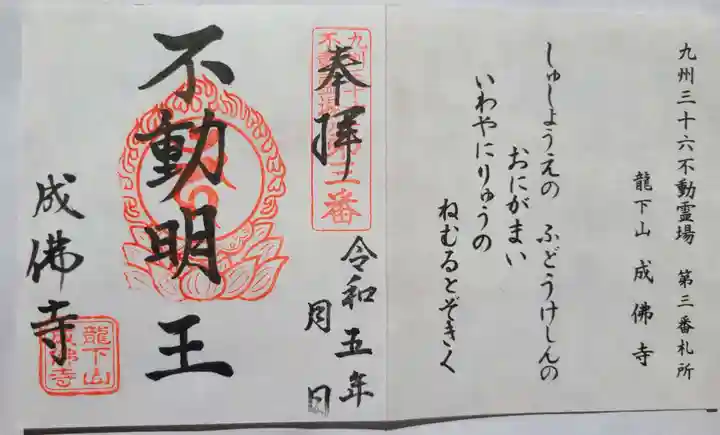 九州三十六不動霊場　第三番札所
龍下山　成佛寺
しゅしょうえの　ふどうけしんの
おにがまい
いわやにりゅうの
ねむるとぞきく
奉拝
九州三十六
不動霊場第三番
令和五年
月　日
不動明王
成佛寺
龍下山
成佛寺